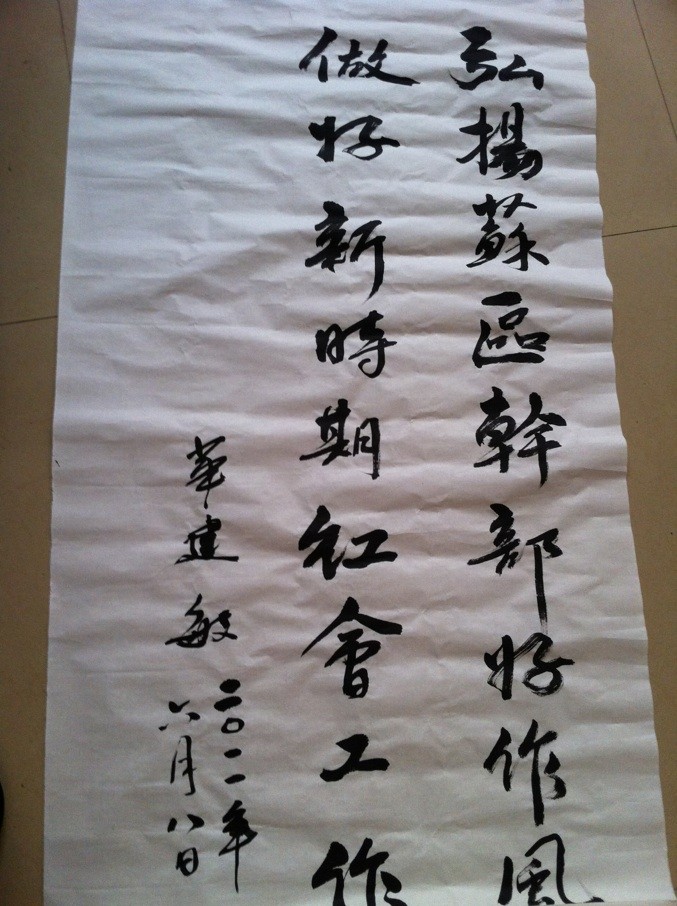 弘揚蘇區幹部好作風
做好新時期紅會工作
華建敏
二〇一一年
六月八日